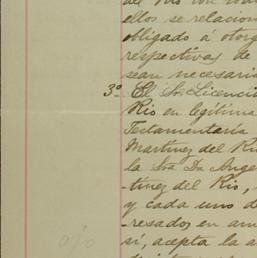 del Rio con
ellos se relacion
obligado á otorg
respectivas de
sean necesario
3º El Sr. Licenci
Rio en legítima
Testamentaria
Martinez del Ri
la Sra Da Ange
tinez del Rio,
y cada uno d
resados en am
si, acepta la a
ojo